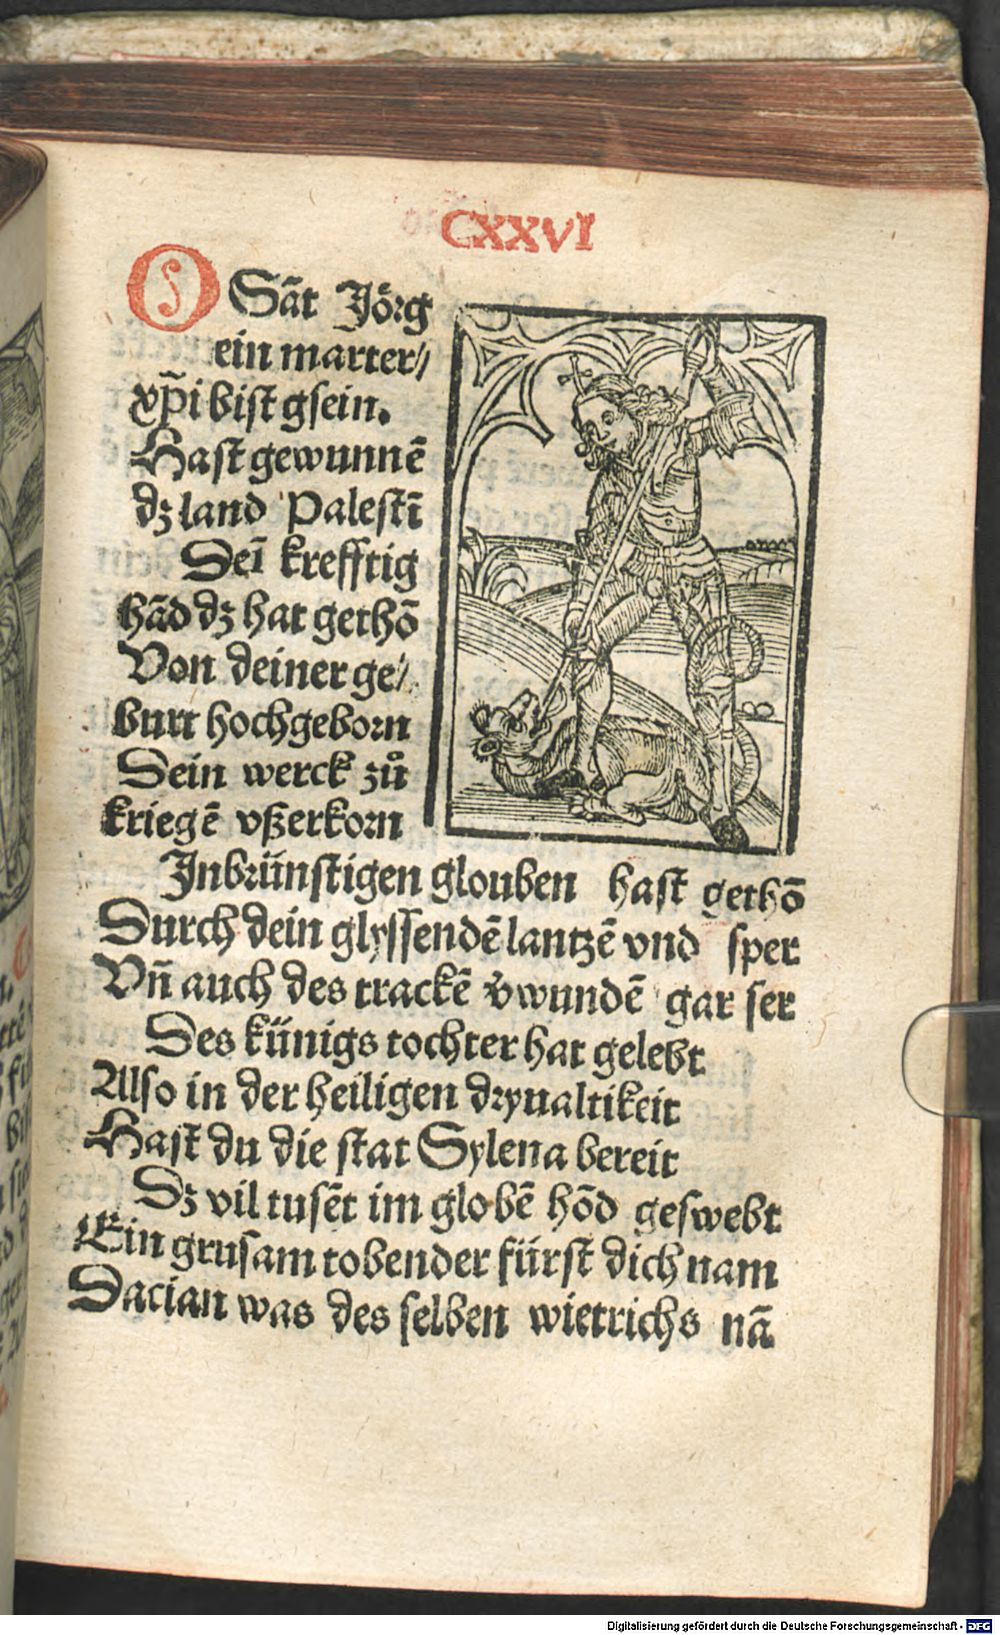 CXXVI
O Sãt Jörg
ein marter⸗
xp̄i bist gsein.
Hast gewunnē
dz land Palestī
Sei krefftig
hãd dz hat gethō
Von deiner ge⸗
burt hochgeborn
Sein werck zů
kriegē vßerkorn
Inbrünstigen glouben hast gethō
Durch dein glyssendē lantzē vnd sper
Vñ auch des trackē v̄wundē gar ser
Des künigs tochter hat gelebt
Also in der heiligen dryualtikeit
Hast du die stat Sylena bereit
Dz vil tusēt im globē hōd geswebt
Ein grusam tobender fürst dich nam
Dacian was des selben wietrichs nā
Digitalisierung gefördert durch die Deutsche Forschungsgemeinschaft - DFG